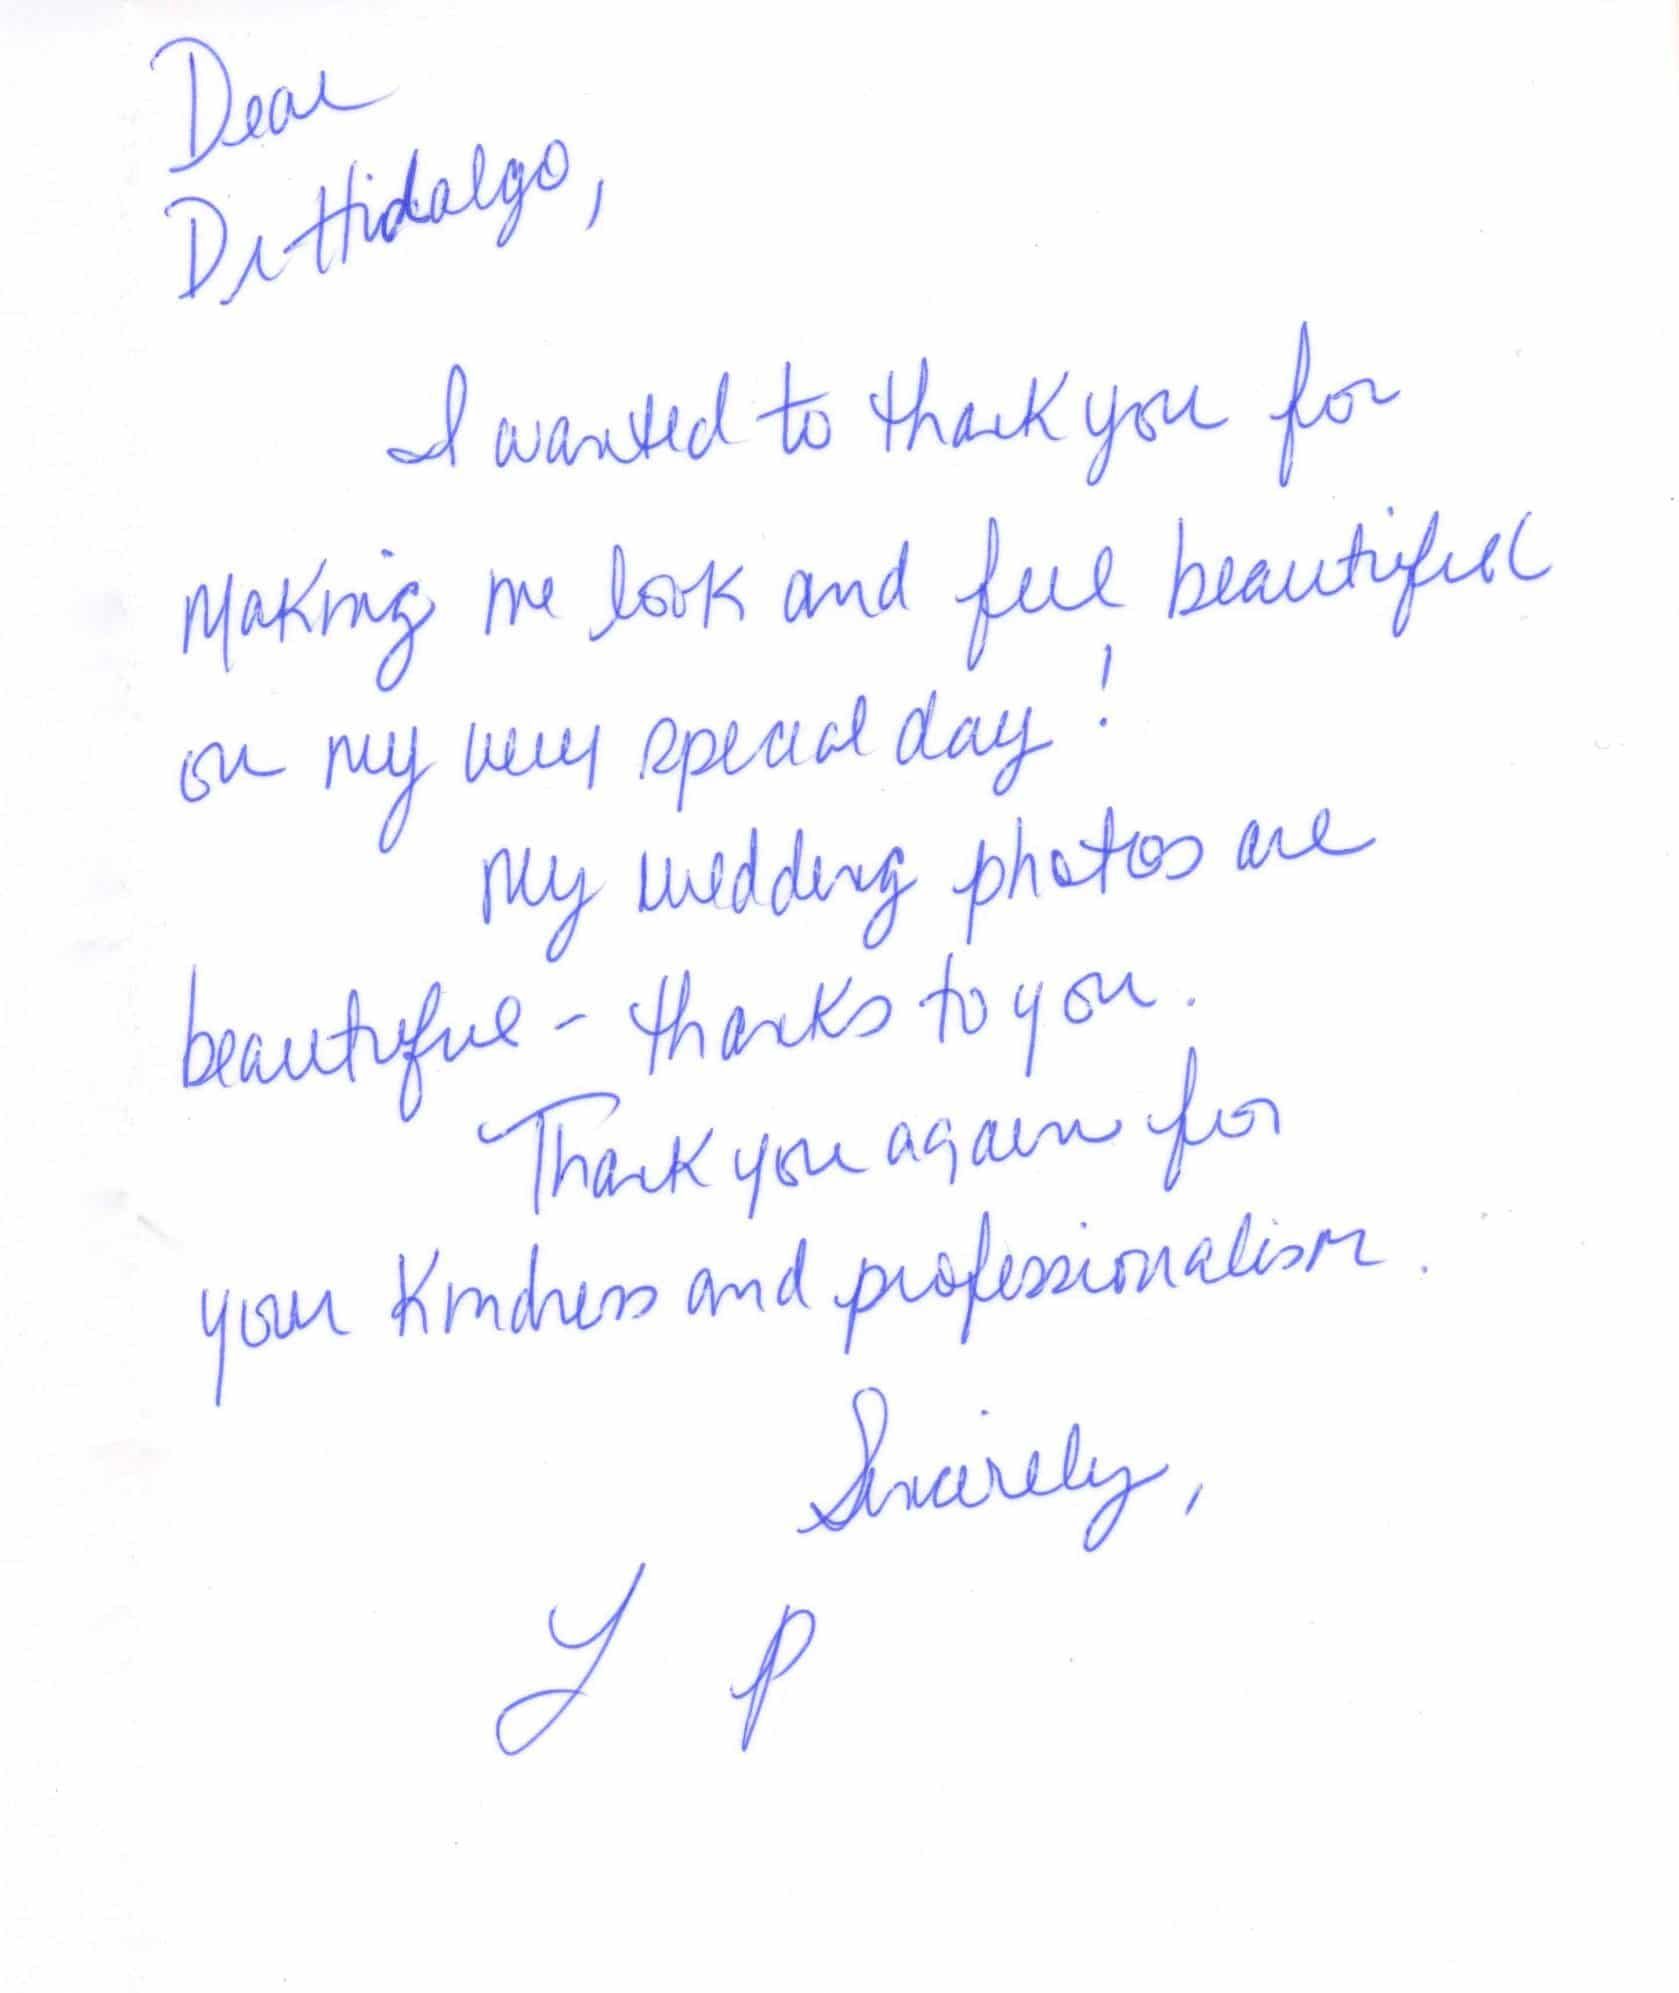 Dear
Dr Hidalgo,
I wanted to thank you for
Making me look and feel beautiful
on my very special day!
My wedding photos are
beautiful - thanks to you.
Thank you again for
your kindness and professionalism.
Sincerely,
Y P